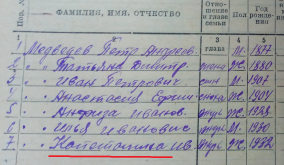 ФАМИЛИЯ, ИМЯ, ОТЧЕСТВО Отно- шение к главе семьи Пол Год рож- дения
1 2 3 4
1 Медведев Петр Андреев. глава М. 1877
2 " Татьяна Дмитр. жена Ж. 1880
3 " Иван Петрович сын М 1907
4 " Анастасия Ефим сноха Ж. 1904
5 " Анфиза Иванов. Ж. 1928
6 " Илья Иванович внук М 1930
7 " Капетолина Ив. Ж.